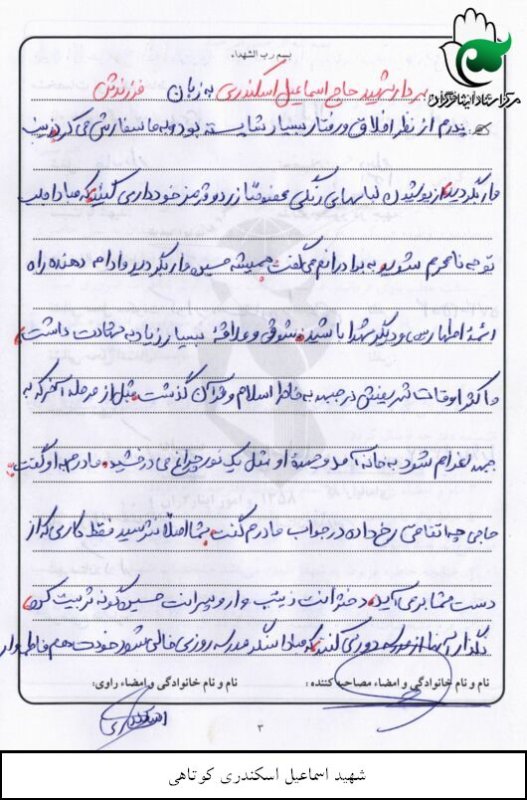 بسم رب الشهداء
مرکز اسناد ایثارگران
سردار شهید حاج اسماعیل اسکندری به زبان فرزندش
پدرم از نظر اخلاق و رفتار بسیار شایسته بود و به ما سفارش می کرد زینب
وار بگردید از پوشیدن لباسهای رنگی مخصوصا زرد و قرمز خودداری کنید که مبادا جلب
توجه نامحرم شوید به برادرانم می گفت همیشه حسین وار بگردید و ادامه دهنده راه
ائمه اطهار (س) و دیگر شهدا باشید شوق و علاقه بسیار زیاد به شهادت داشت
و اکثر اوقات شریفش در جبهه به خاطر اسلام و قرآن گذشت قبل از مرحله آخر که به
جبهه اعزام شود به خانه آمد و چهره او مثل یک نور چراغ می درخشید مادرم به او گفت
حاجی چه اتفاقی رخ داده در جواب مادرم گفت شما اصلا نترسید فقط کاری که از
دست شما بر می آید دخترانت زینب وار و پسرانت حسین گونه تربیت کن
نگذار آنها از مدرسه دوری کنند که مبادا سنگر مدرسه روزی خالی شود خودت هم فاطمه وار
نام و نام خانوادگی و امضاء مصاحبه کننده : نام و نام خانوادگی و امضاء راوی:
اسکندری
۳
شهید اسماعیل اسکندری کوتاهی